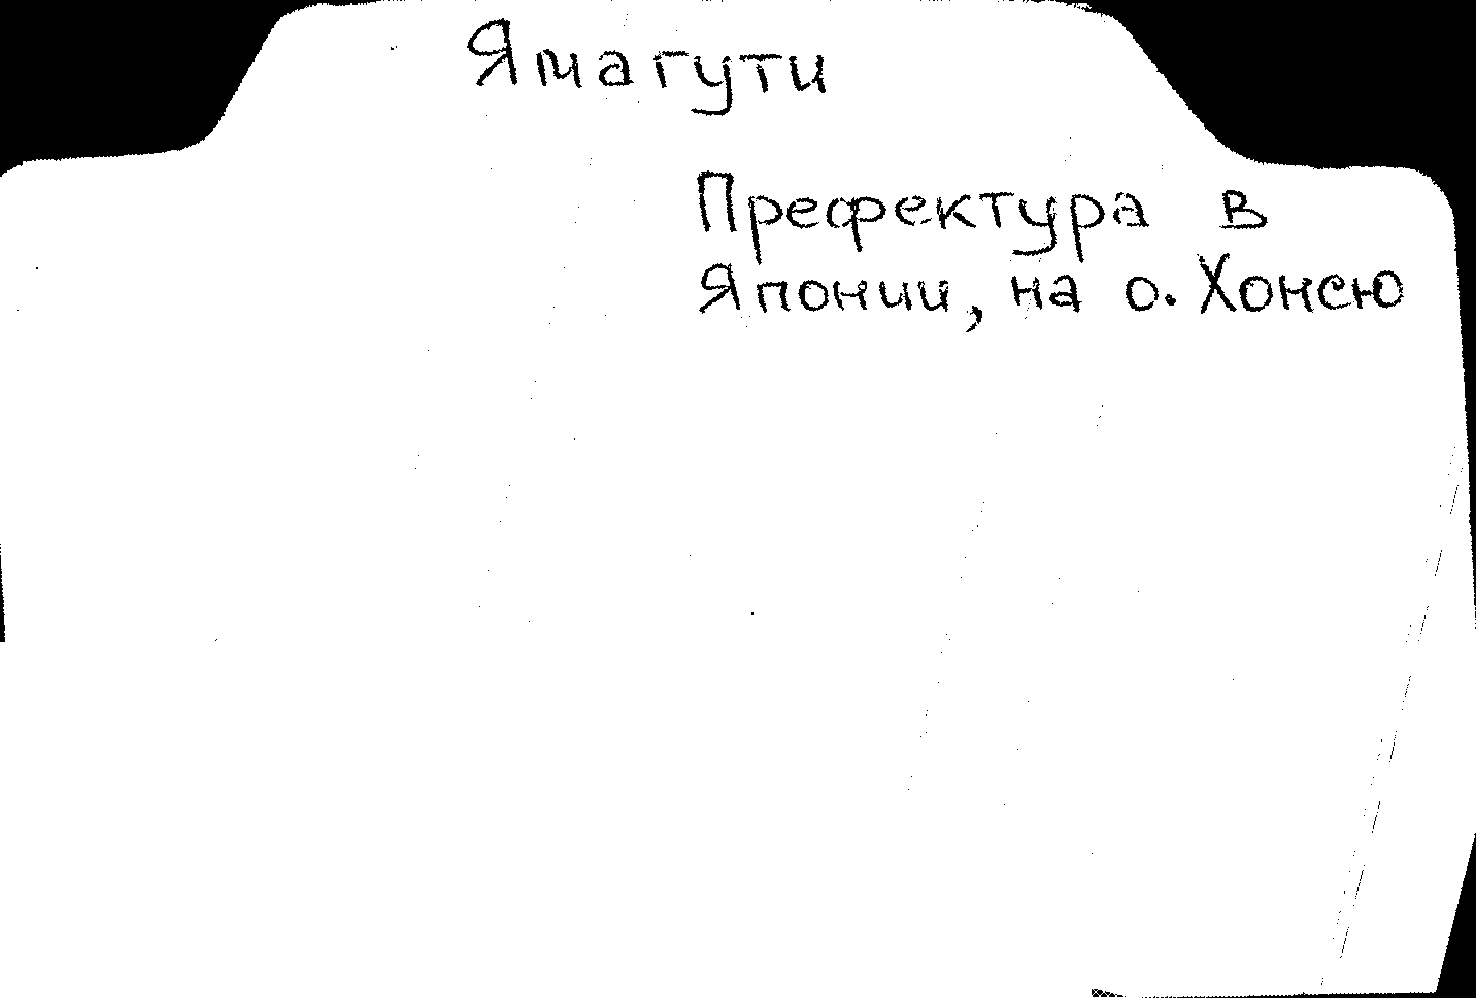 Ямагути
Префектура в
Японии, на о. Хонсю